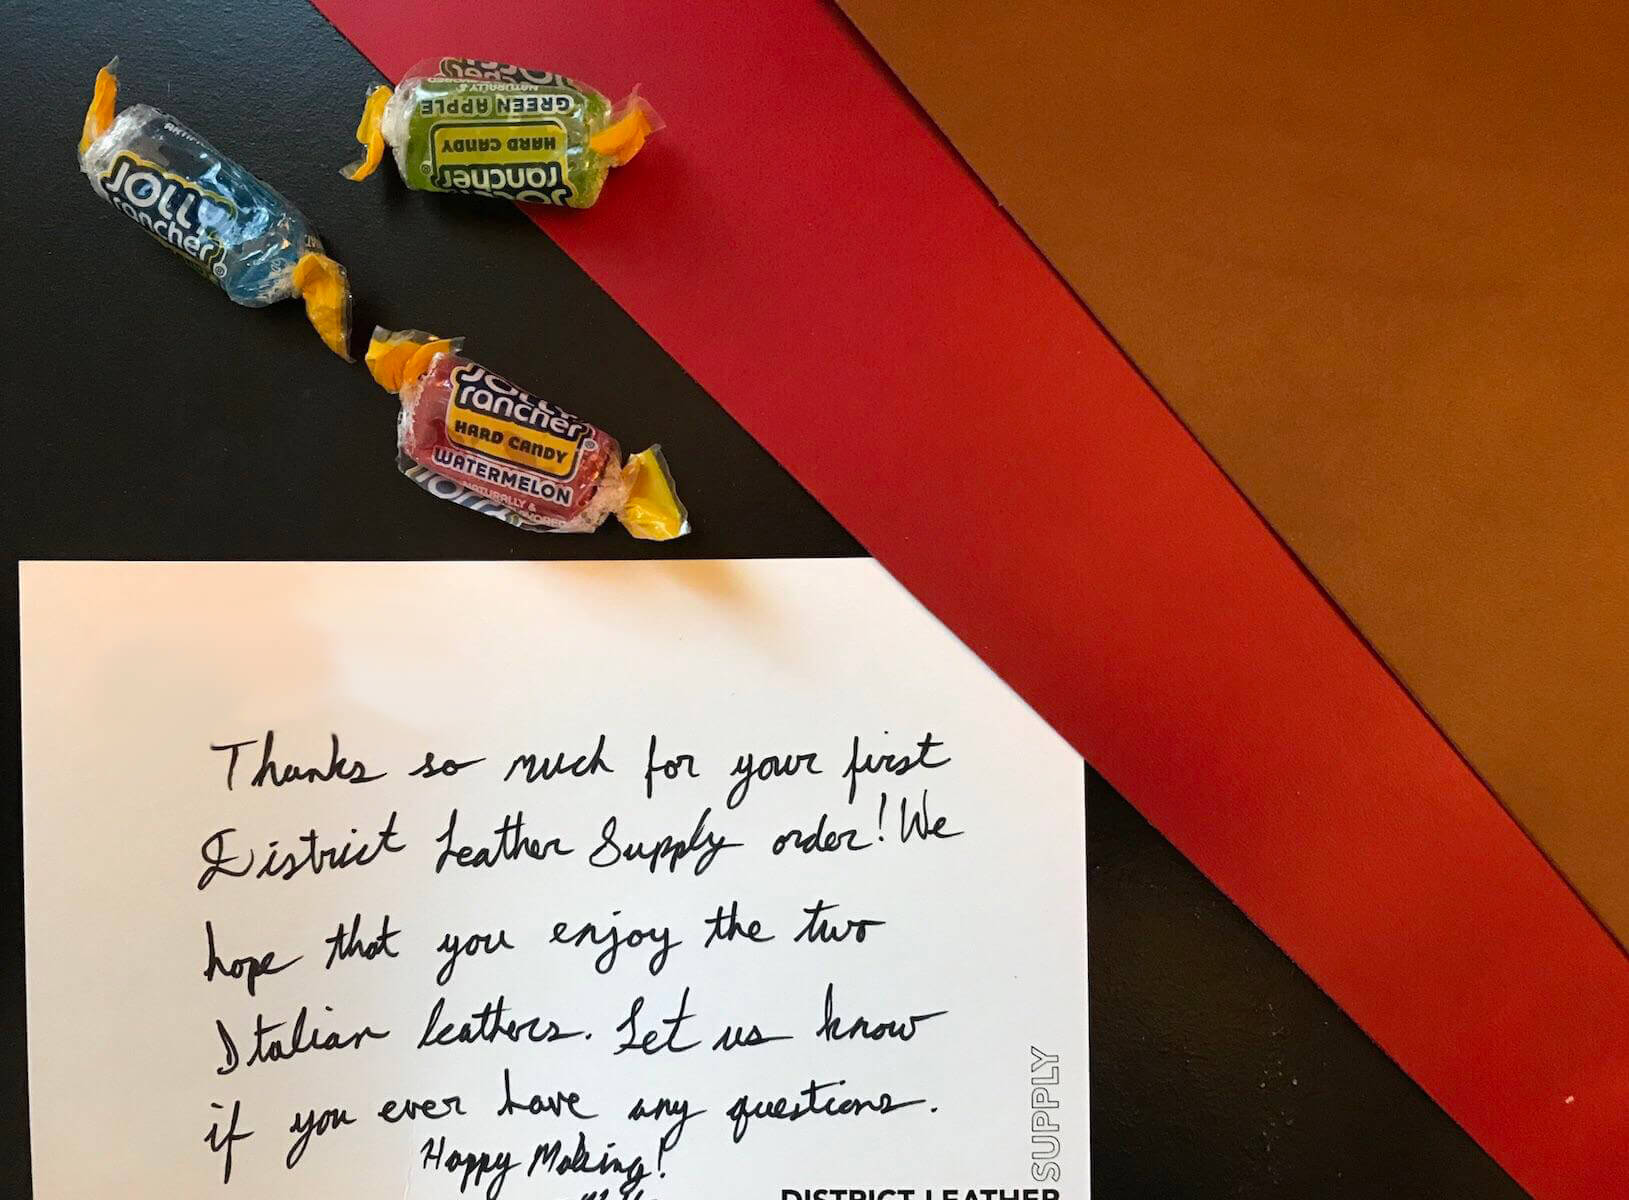 JOLLY
rancher
GREEN APPLE
HARD CANDY
rancher
JOLLY
rancher
HARD CANDY
WATERMELON
NATURALLY &
Thanks so much for your first
District Leather Supply order! We
hope that you enjoy the two
Italian leathers. Let us know
if you ever have any questions.
Happy Making!
SUPPLY
DISTRICT LEATHER